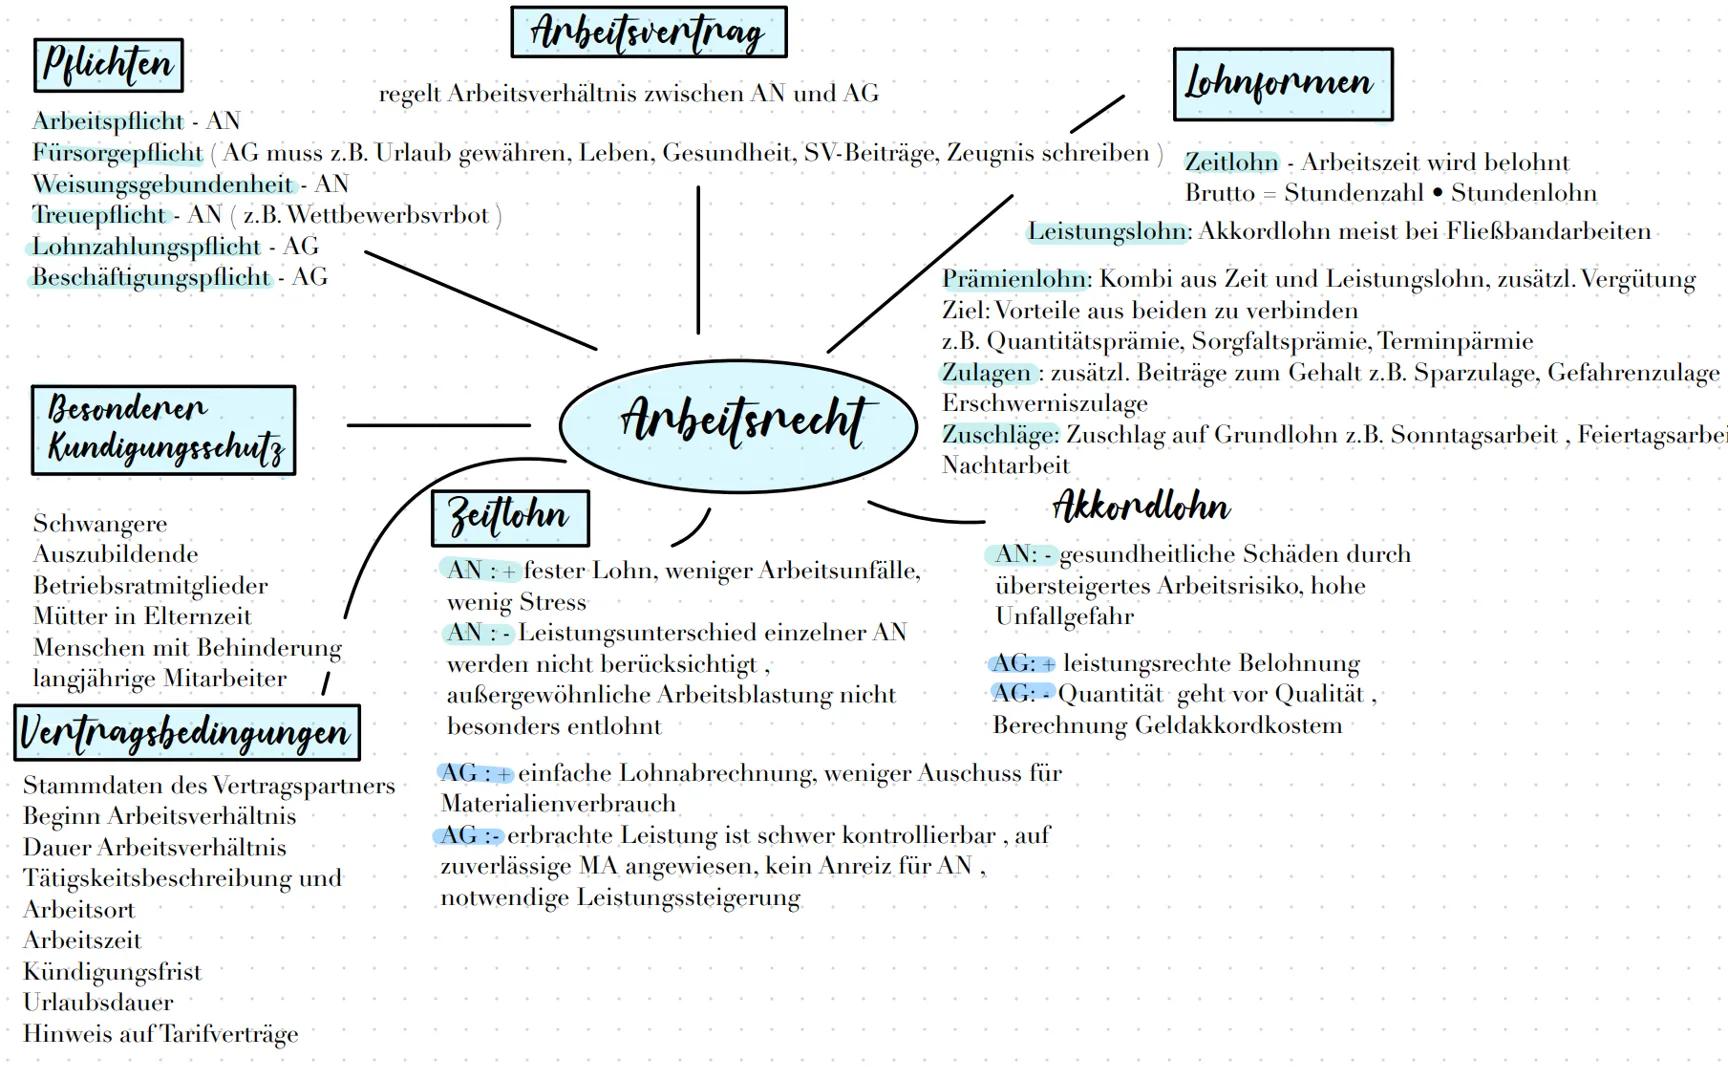 Arbeitsvertrag
regelt Arbeitsverhältnis zwischen AN und AG
Pflichten
Arbeitspflicht - AN
Fürsorgepflicht ( AG muss z.B. Urlaub gewähren, Leben, Gesundheit, SV-Beiträge, Zeugnis schreiben )
Weisungsgebundenheit - AN
Treuepflicht - AN ( z.B. Wettbewerbsvrbot )
Lohnzahlungspflicht - AG
Beschäftigungspflicht - AG
Lohnformen
Zeitlohn - Arbeitszeit wird belohnt
Brutto = Stundenzahl • Stundenlohn
Leistungslohn: Akkordlohn meist bei Fließbandarbeiten
Prämienlohn: Kombi aus Zeit und Leistungslohn, zusätzl. Vergütung
Ziel: Vorteile aus beiden zu verbinden
z.B. Quantitätsprämie, Sorgfaltsprämie, Terminpärmie
Zulagen : zusätzl. Beiträge zum Gehalt z.B. Sparzulage, Gefahrenzulage
Erschwerniszulage
Zuschläge: Zuschlag auf Grundlohn z.B. Sonntagsarbeit , Feiertagsarbei
Nachtarbeit
Arbeitsrecht
Besonderer
Kundigungsschutz
Schwangere
Auszubildende
Betriebsratmitglieder
Mütter in Elternzeit
Menschen mit Behinderung
langjährige Mitarbeiter
Zeitlohn
AN : + fester Lohn, weniger Arbeitsunfälle,
wenig Stress
AN : - Leistungsunterschied einzelner AN
werden nicht berücksichtigt ,
außergewöhnliche Arbeitsblastung nicht
besonders entlohnt
AG : + einfache Lohnabrechnung, weniger Auschuss für
Materialienverbrauch
AG :- erbrachte Leistung ist schwer kontrollierbar , auf
zuverlässige MA angewiesen, kein Anreiz für AN ,
notwendige Leistungssteigerung
Akkordlohn
AN: - gesundheitliche Schäden durch
übersteigertes Arbeitsrisiko, hohe
Unfallgefahr
AG: + leistungsrechte Belohnung
AG: - Quantität geht vor Qualität ,
Berechnung Geldakkordkostem
Vertragsbedingungen
Stammdaten des Vertragspartners
Beginn Arbeitsverhältnis
Dauer Arbeitsverhältnis
Tätigskeitsbeschreibung und
Arbeitsort
Arbeitszeit
Kündigungsfrist
Urlaubsdauer
Hinweis auf Tarifverträge